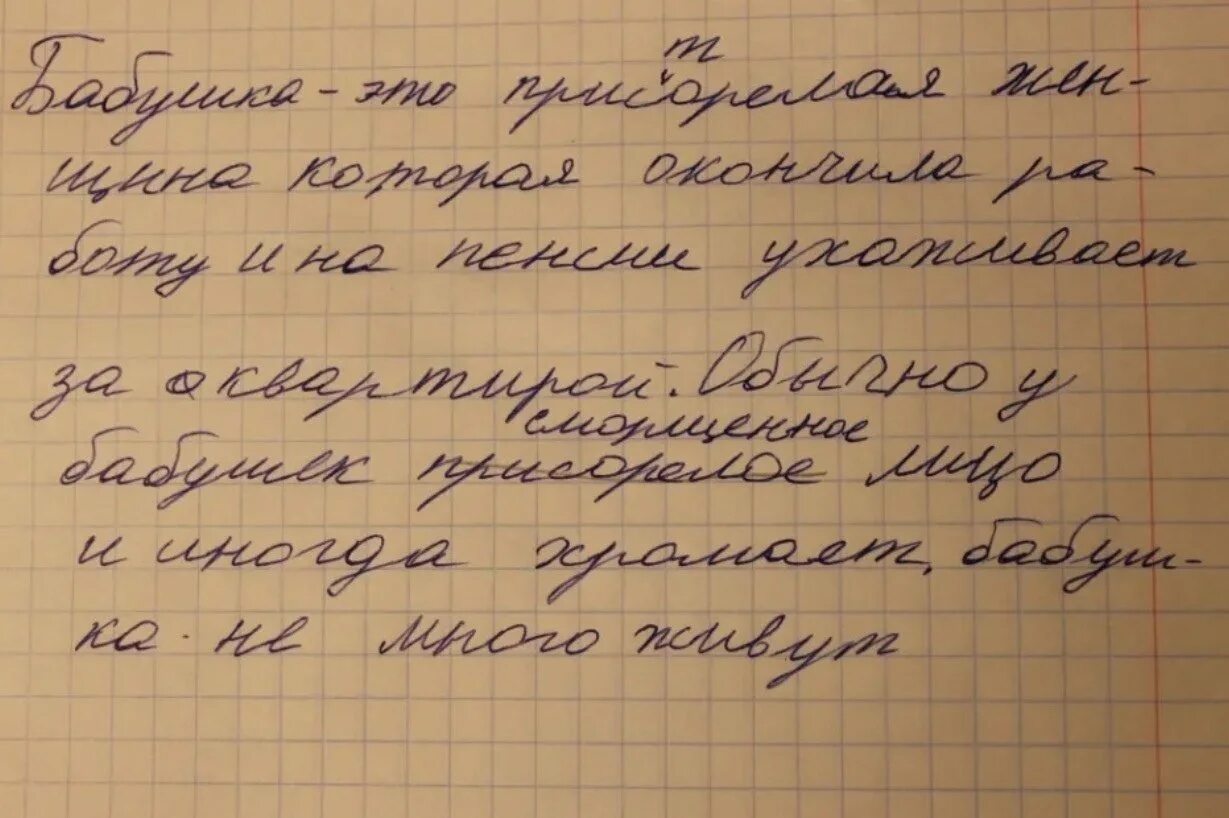 Бабушка - это присторелая жен-
щина которая окончила ра-
боту и на пенсии ухаживает
за квартирой. Обычно у
сморщенное
бабушек присорелое лицо
и иногда хромает, бабуш-
ка не много живут